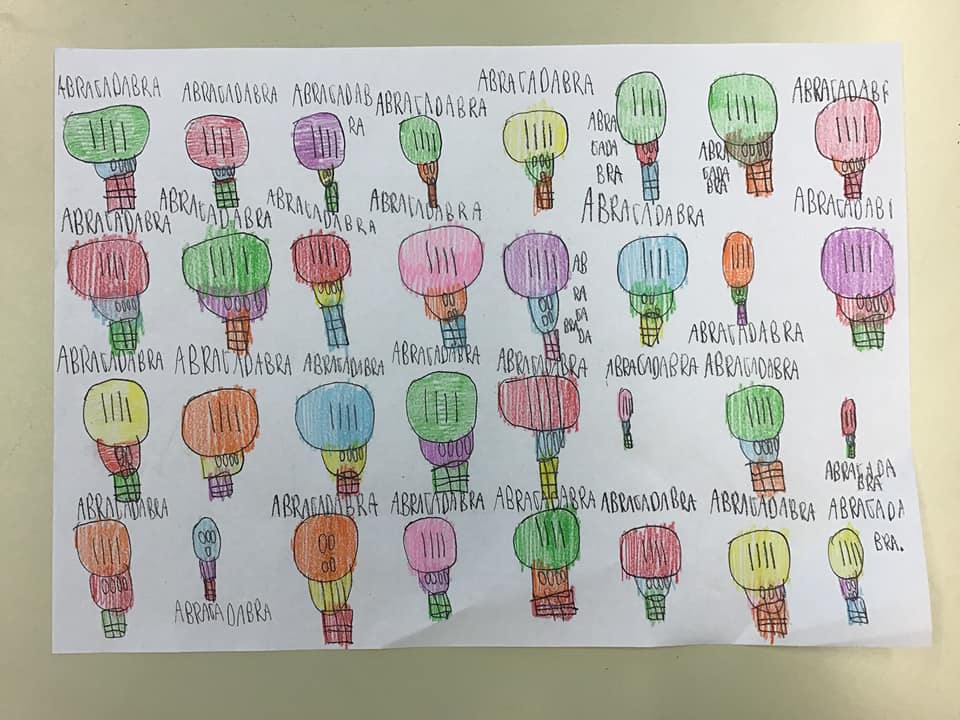 ABRACADABRA
ABRACADABRA
ABRACADAB
RA
ABRACADABRA
ABRACADABRA
ABRA
CADA
BRA
ABRA
CADA
BRA
ABRACADABR
ABRACADABRA
ABRACADABRA
ABRACADABRA
ABRACADABRA
AB
RA
CA
BRA DA
ABRACADABRA
ABRACADABRA
ABRACADABR
ABRACADABRA
ABRACADABRA
ABRACADABRA
ABRACADABRA
ABRACADABRA
ABRACADABRA
ABRACADABRA
ABRACADA
BRA
ABRACADABRA
ABRACADABRA
ABRACADABRA
ABRACADABRA
ABRACADABRA
ABRACADABRA
ABRACADABRA
ABRACADA
BRA.